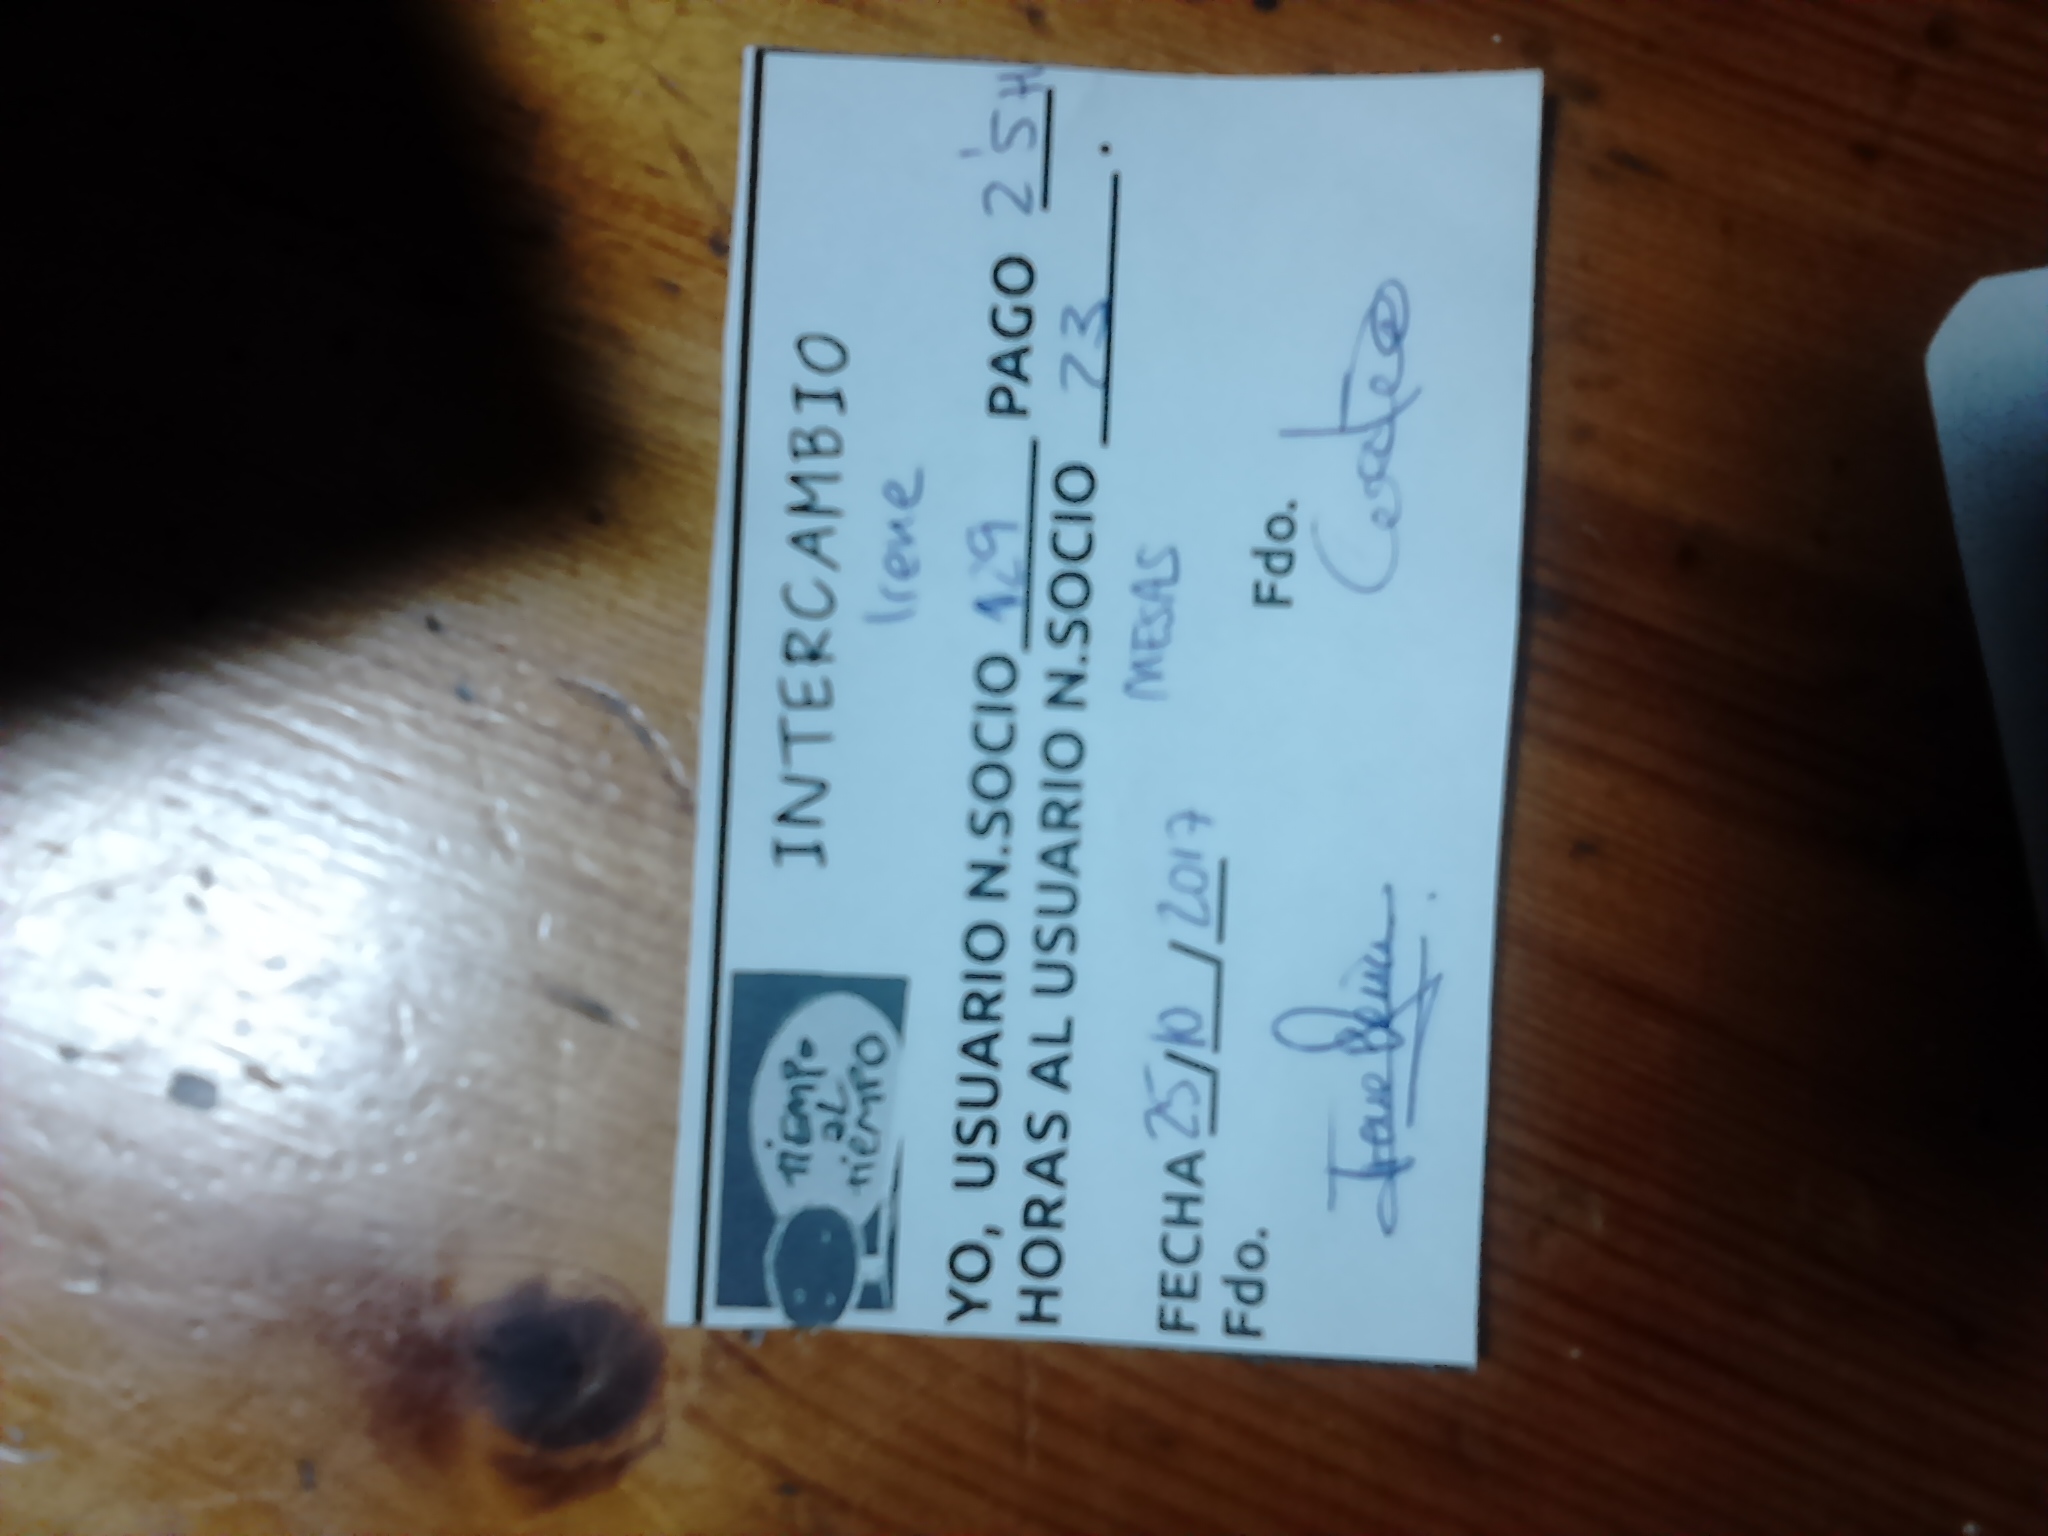 TIEMPO
AL
TIEMPO
INTERCAMBIO
Irene
YO, USUARIO N.SOCIO 129 PAGO 2'5H
HORAS AL USUARIO N.SOCIO 23.
MESAS
FECHA 25/10/2017
Fdo.
Fdo.
Irene